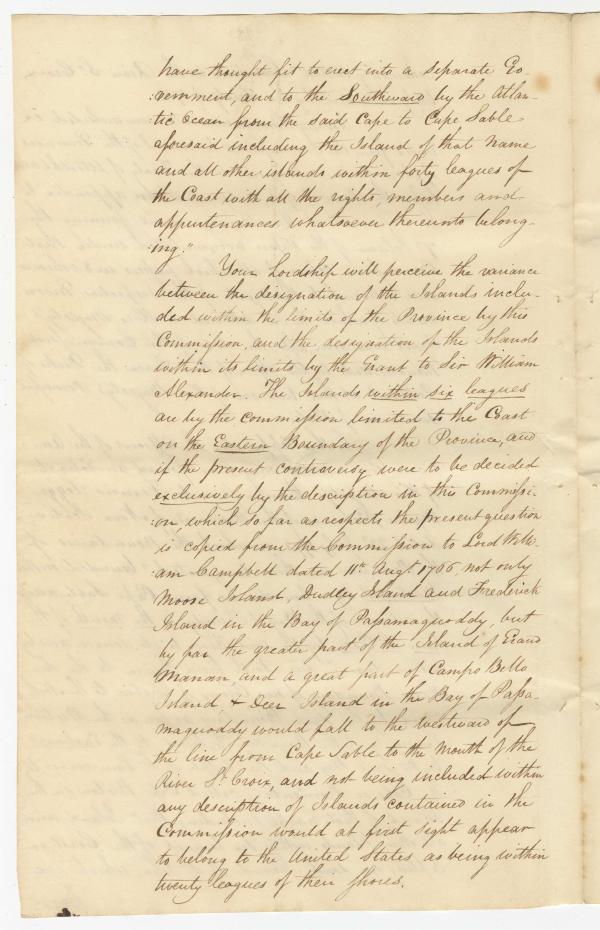 have thought fit to erect into a separate Go-
:vernment, and to the Southward by the Atlan-
tic Ocean from the said Cape to Cape Sable
aforesaid including the Island of that Name
and all other islands within forty leagues of
the Coast with all the rights, members and
appurtenances whatsoever thereunto belong-
:ing."
Your Lordship will perceive the variance
between the designation of the Islands inclu-
ded within the limits of the Province by this
Commission, and the designation of the Islands
within its limits by the Grant to Sir William
Alexander. The Islands within six leagues
are by the commission limited to the Coast
on the Eastern Boundary of the Province, and
if the present controversy were to be decided
exclusively by the description in this Commissi-
:on, which so far as respects the present question
is copied from the Commission to Lord Willi-
:am Campbell dated 11th Augt. 1766, not only
Moose Island, Dudley Island and Frederick
Island in the Bay of Passamaquoddy, but
by far the greater part of the Island of Grand
Manan, and a great part of Campo Bello
Island, & Deer Island in the Bay of Passa-
maquoddy would fall to the westward of
the line from Cape Sable to the Mouth of the
River St. Croix, and not being included within
any description of Islands contained in the
Commission would at first sight appear
to belong to the United States as being within
twenty leagues of their Shores.